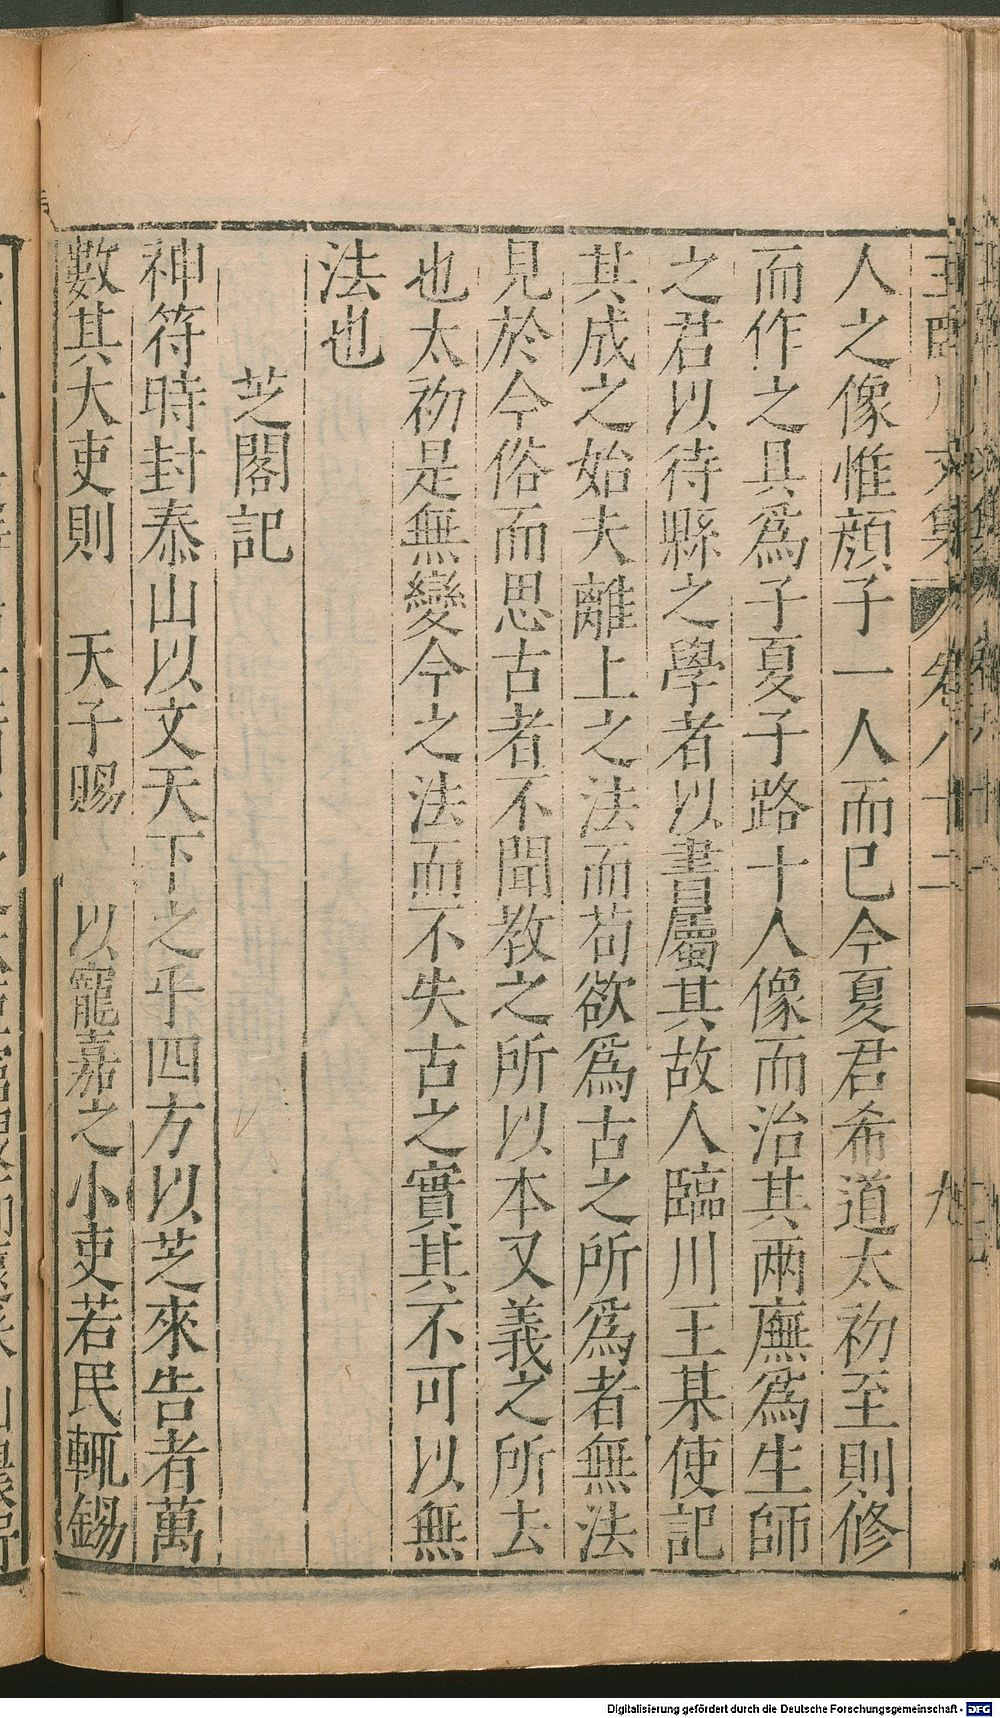 王臨川文集 卷八十二 九
人之像惟顔子一人而已今夏君希道太初至則修
而作之具爲子夏子路十人像而治其兩廡爲生師
之君以待縣之學者以書屬其故人臨川王某使記
其成之始夫離上之法而苟欲爲古之所爲者無法
見於今俗而思古者不聞教之所以本又義之所去
也太初是無變今之法而不失古之實其不可以無
法也
芝閣記
神符時封泰山以文天下之平四方以芝來告者萬
數其大吏則 天子賜 以寵嘉之小吏若民輒錫
Digitalisierung gefördert durch die Deutsche Forschungsgemeinschaft - DFG